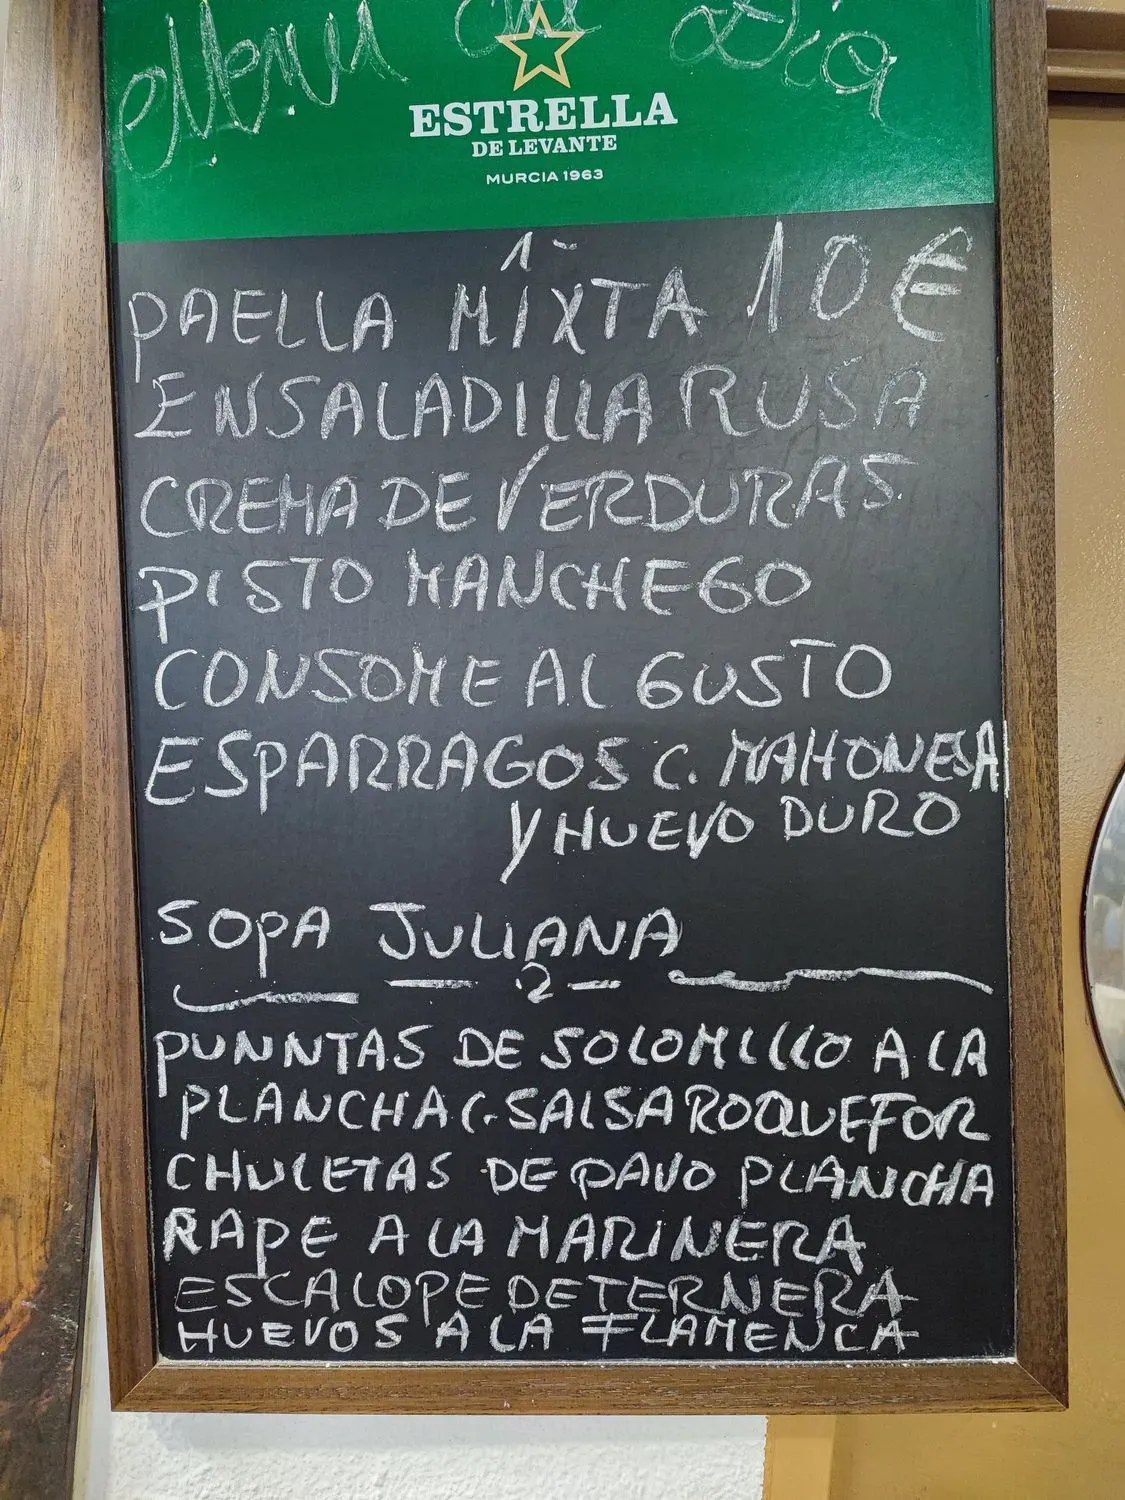 Menu del Dia
ESTRELLA
DE LEVANTE
MURCIA 1963
1-
PAELLA MIXTA 10€
ENSALADILLA RUSA
CREMA DE VERDURAS.
PISTO MANCHEGO
CONSOME AL GUSTO
ESPARRAGOS C. MAHONESA
Y HUEVO DURO
SOPA JULIANA
2-
PUNNTAS DE SOLOMILLO A LA
PLANCHA C. SALSA ROQUEFOR
CHULETAS DE PAVO PLANCHA
RAPE A LA MARINERA
ESCALOPE DE TERNERA
HUEVOS A LA FLAMENCA